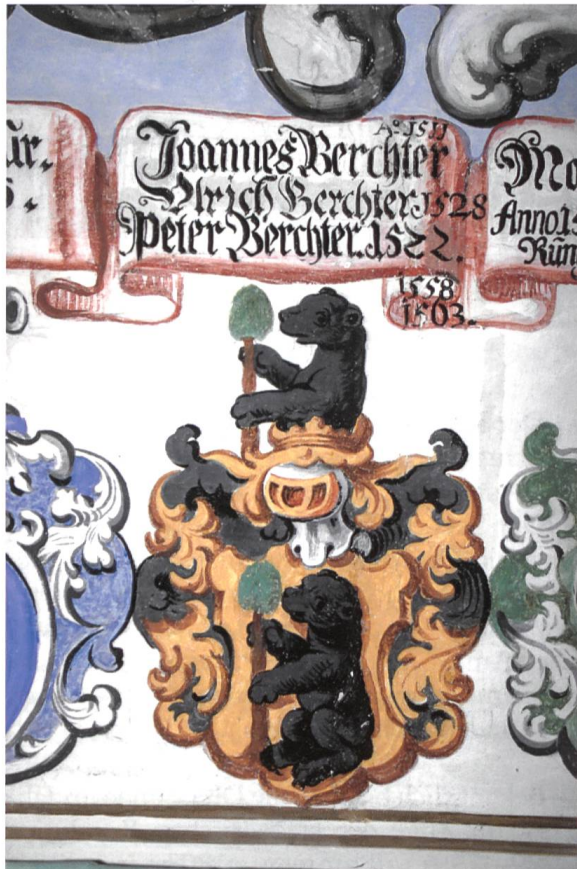 ür.
Aº 1511
Joannes Berchter
Ulrich Berchter 1528
Peter Berchter. 1522.
1558
1503.
Mo
Anno 15
Rüng